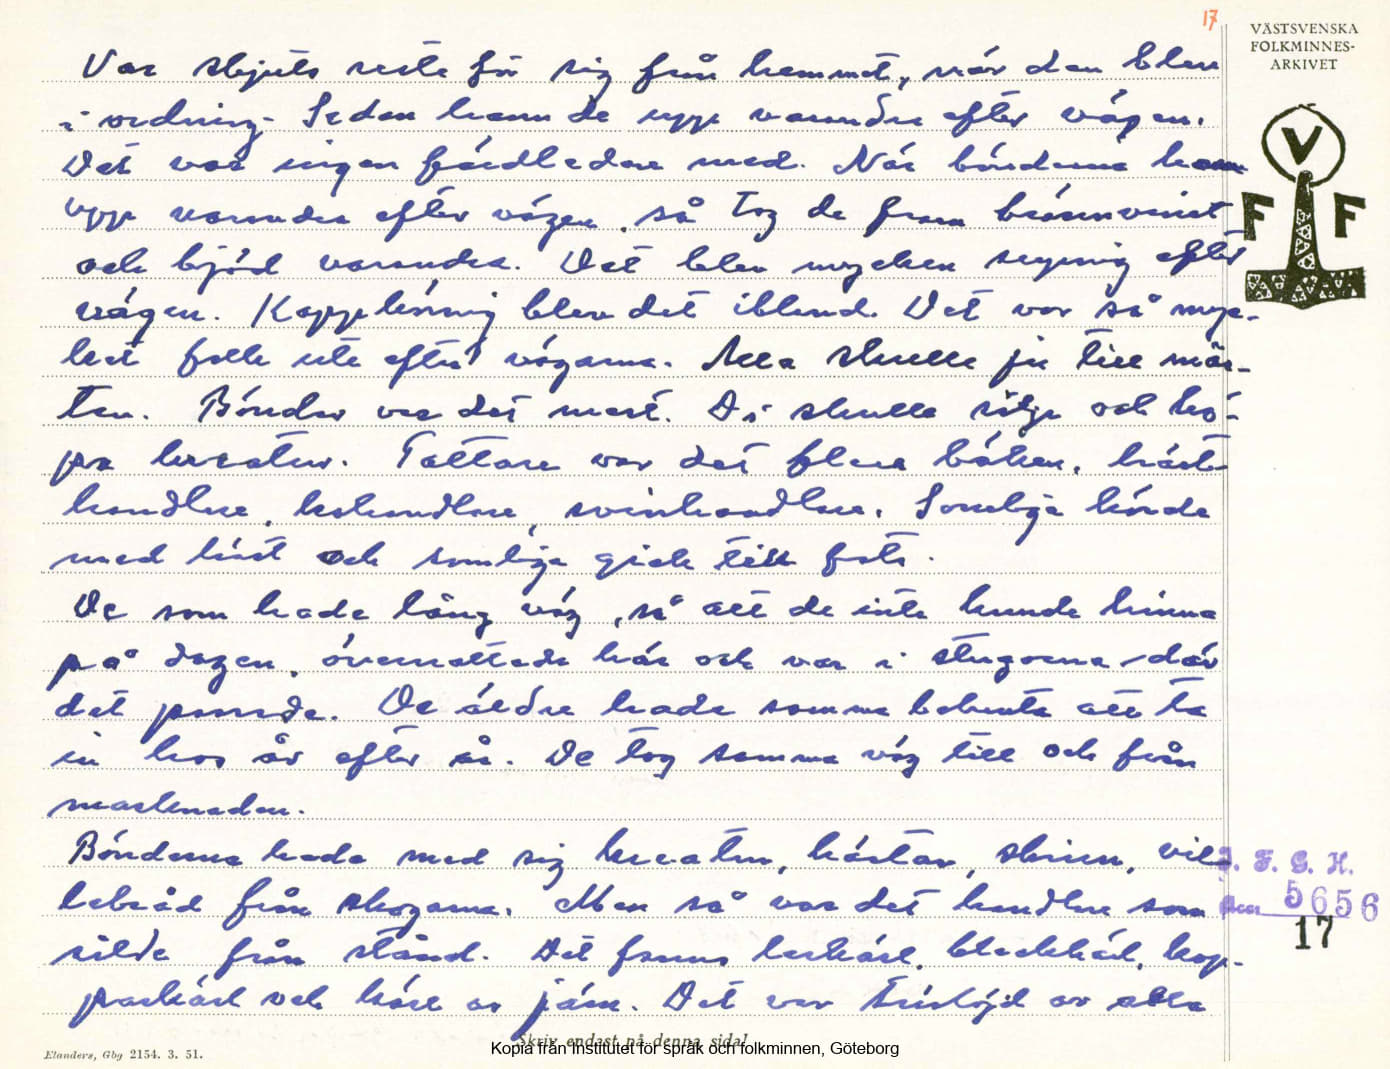 17
VÄSTSVENSKA
FOLKMINNES-
ARKIVET
Var skjuts reste för sig från hemmet, när den blev
i ordning. Sedan hann de upp varandra efter vägen.
Det var ingen färdledare med. När bönderna hann
upp varandra efter vägen, så tog de fram brännvinet
och bjöd varandra. Det blev mycken supning efter
vägen. Kappkörning blev det ibland. Det var så myc-
ket folk ute efter vägarna. Alla skulle ju till mår-
ten. Bönder var det mest. De skulle sälja och kö-
pa kreatur. Tattare var det flera böken, häst-
handlare, kohandlare, svinhandlare. Somliga körde
med häst och somliga gick till fots.
De som hade lång väg, så att de inte kunde hinna
på dagen, övernattade här och var i stugorna där
det passade. De äldre hade samma bekanta att ta
in hos år efter år. De tog samma väg till och från
marknaden.
Bönderna hade med sig kreatur, hästar, skinn, vil-
lebråd från skogarna. Men så var det handlare som
sålde från stånd. Det fanns lerkärl, bleckkärl, kop-
parkärl och kärl av järn. Det var träslöjd av alla
V
F F
I. F. G. H.
Acc 5656
17
Skriv endast på denna sida!
Elanders, Gbg 2154. 3. 51.
Kopia från Institutet för språk och folkminnen, Göteborg